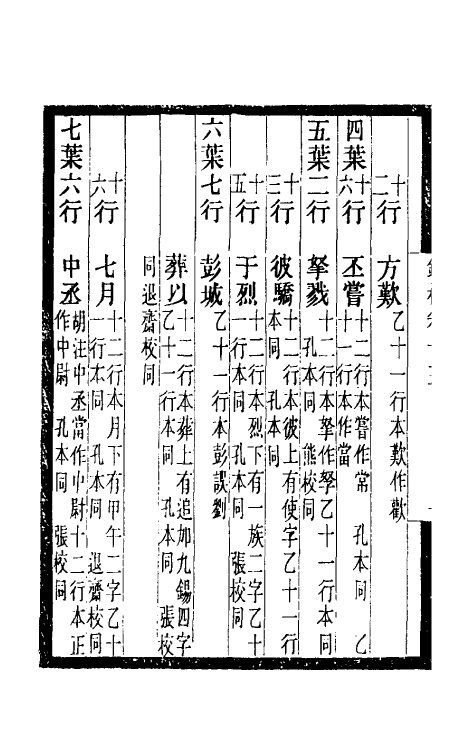 十二行　方歎　乙十一行本歎作歡
四葉十六行　丕嘗　十二行本嘗作常　孔本同　乙
十一行本作當
五葉二行　拏戮　十二行本拏作孥乙十一行本同
孔本同　熊校同
十三行　彼驕　十二行本彼上有使字乙十一行
本同　孔本同
十五行　于烈　十二行本烈下有一族二字乙十
一行本同　孔本同　張校同
六葉七行　彭城　乙十一行本彭誤劉
葬以　十二行本葬上有追加九錫四字
乙十一行本同　孔本同　張校
同退齋校同
十六行　七月　十二行本月下有甲午二字乙十
一行本同　孔本同　退齋校同
七葉六行　中丞　胡注中丞當作中尉　十二行本正
作中尉　孔本同　張校同